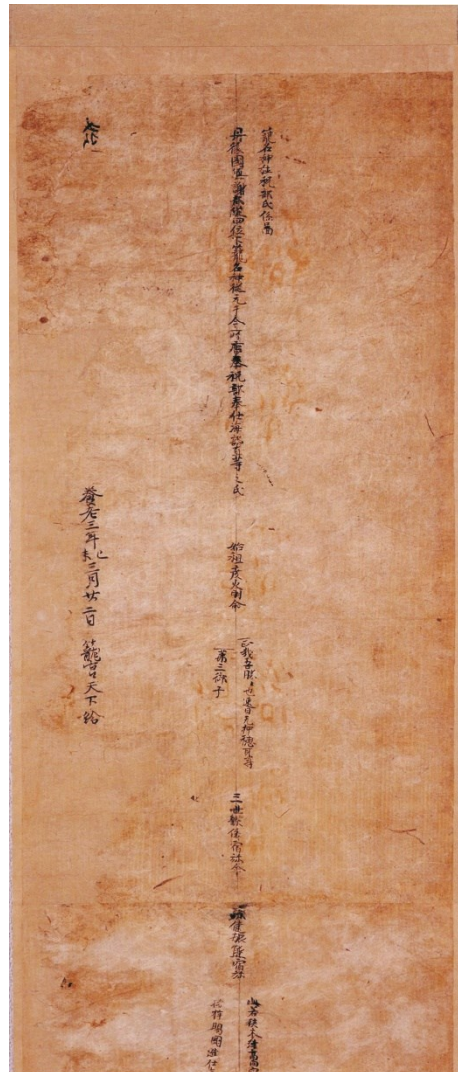 籠名神社祝部氏係圖
丹後國與謝郡從四位下籠名神從元于今所齋奉祝部奉仕海部直等之氏
始祖彦火明命
正哉吾勝〻也速日天押穂耳尊
第三御子
三世孫倭宿祢命
孫健振熊宿祢
此若狭木津高向宮
桙賜國造仕
養老三年己未三月廿二日籠宮天下給